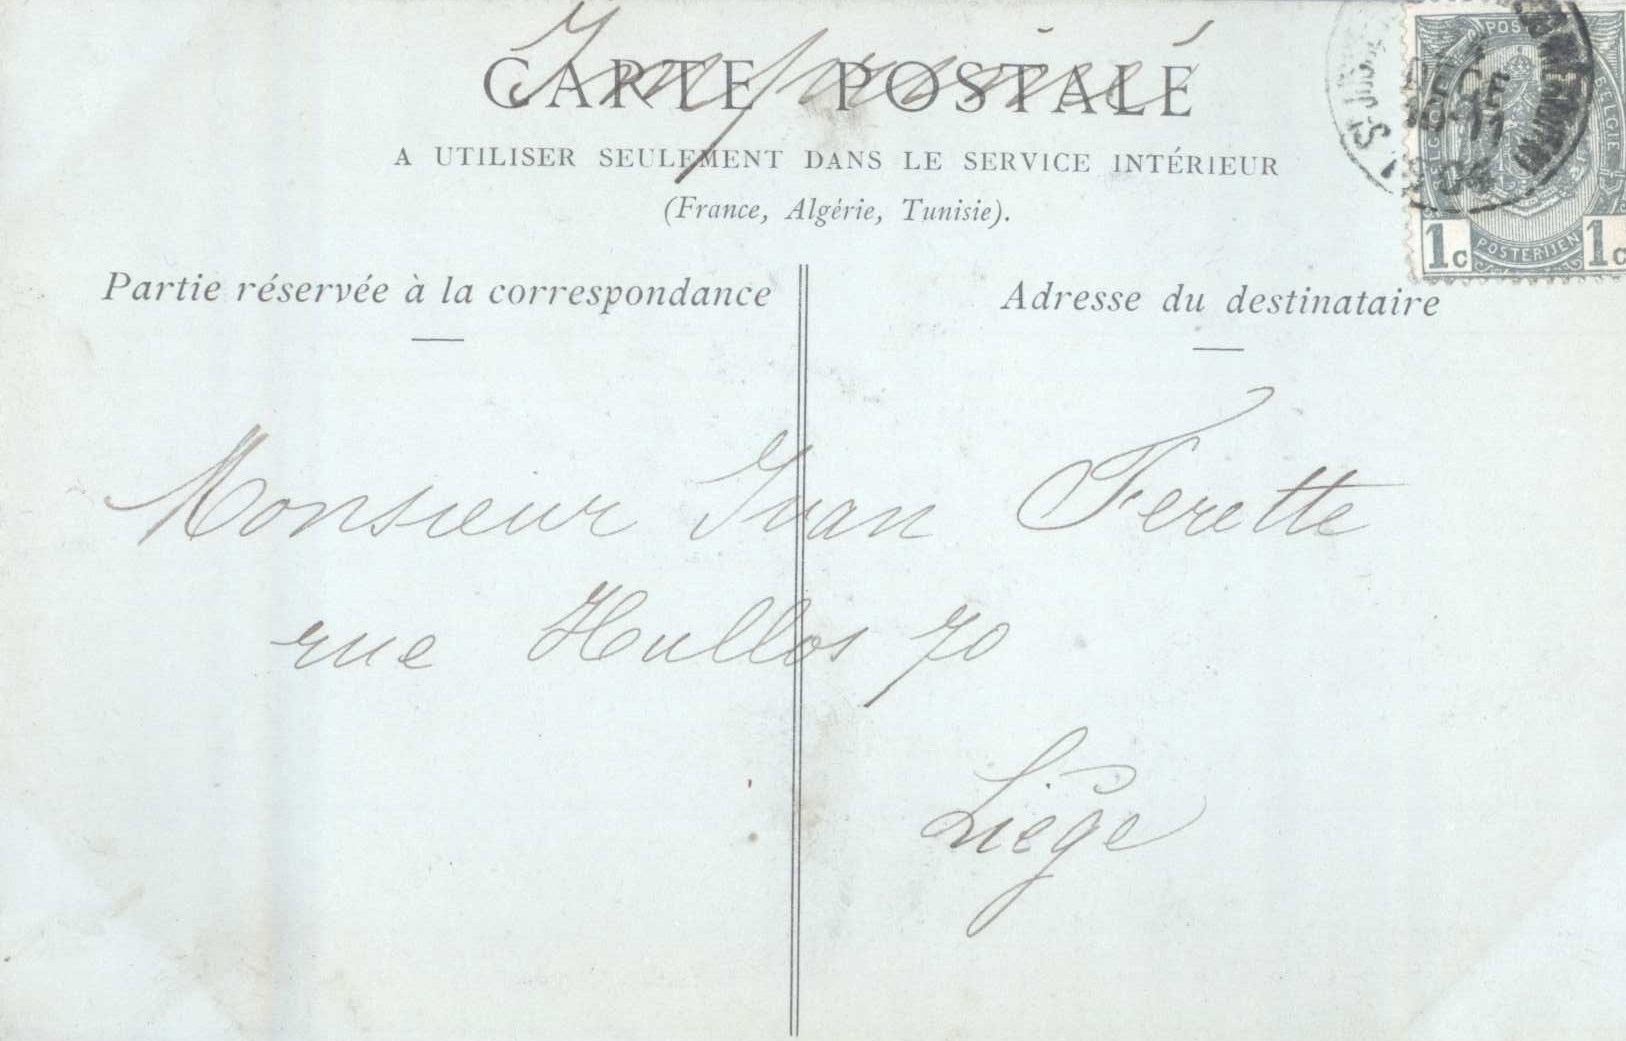 Imprimé
CARTE POSTALE
A UTILISER SEULEMENT DANS LE SERVICE INTÉRIEUR
(France, Algérie, Tunisie).
Partie réservée à la correspondance
Adresse du destinataire
Monsieur Ivan Ferette
rue Hullos 70
Liège
POSTERIJEN
BELGIE
1c 1c